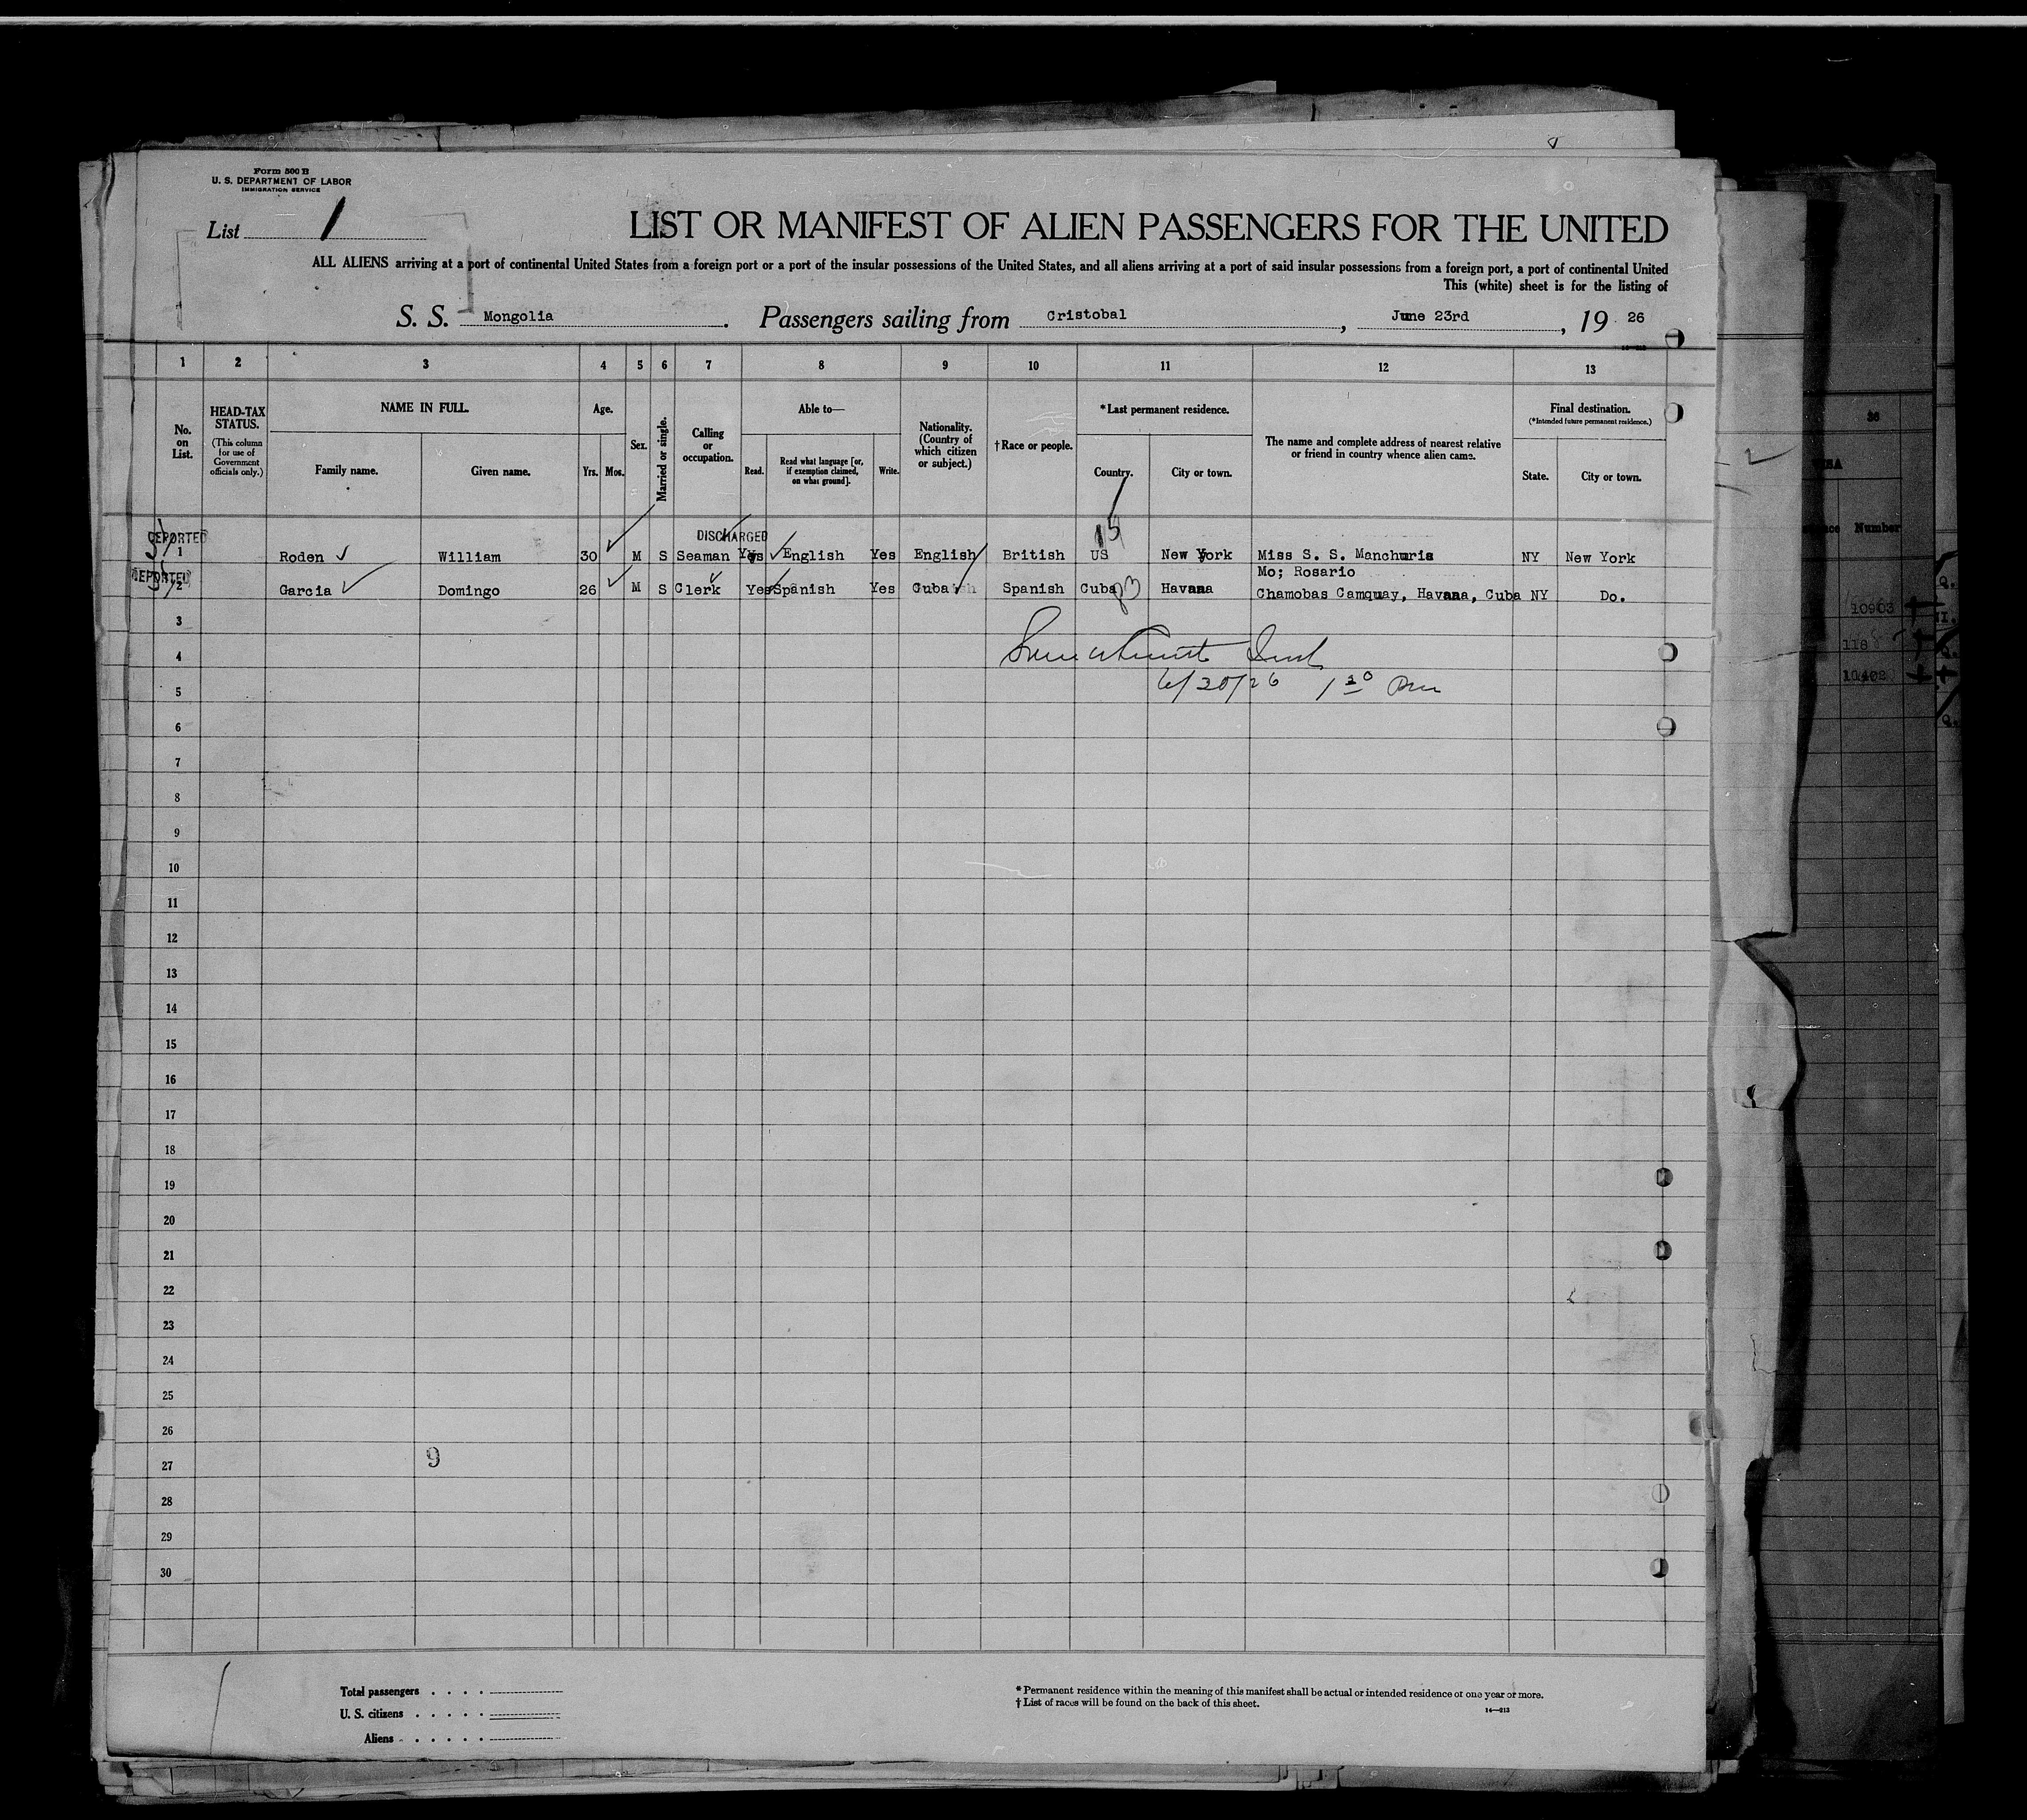 Form 500 B
U. S. DEPARTMENT OF LABOR
IMMIGRATION SERVICE
List 1
LIST OR MANIFEST OF ALIEN PASSENGERS FOR THE UNITED
ALL ALIENS arriving at a port of continental United States from a foreign port or a port of the insular possessions of the United States, and all aliens arriving at a port of said insular possessions from a foreign port, a port of continental United
This (white) sheet is for the listing of
S. S. Mongolia. Passengers sailing from Cristobal, June 23rd, 19 26
1 2 3 4 5 6 7 8 9 10 11 12 13
No. on List.
HEAD-TAX STATUS. (This column for use of Government officials only.)
NAME IN FULL.
Family name. Given name.
Age.
Yrs. Mos.
Sex.
Married or single.
Calling or occupation.
Able to—
Read. Read what language [or, if exemption claimed, on what ground]. Write.
Nationality. (Country of which citizen or subject.)
†Race or people.
*Last permanent residence.
Country. City or town.
The name and complete address of nearest relative or friend in country whence alien came.
Final destination.
(*Intended future permanent residence.)
State. City or town.
DEPORTED DISCHARGED 15
1 Roden William 30 M S Seaman Yes English Yes English British US New York Miss S. S. Manchuria NY New York
DEPORTED Mo; Rosario
2 Garcia Domingo 26 M S Clerk Yes Spanish Yes Cuba Spanish Cuba 83 Havana Chamobas Camquay, Havana, Cuba NY Do.
3
4
5 1 30 Pm
6
7
8
9
10
11
12
13
14
15
16
17
18
19
20
21
22
23
24
25
26
27 9
28
29
30
Total passengers
U. S. citizens
Aliens
* Permanent residence within the meaning of this manifest shall be actual or intended residence of one year or more.
† List of races will be found on the back of this sheet.
14—213
36
Number
10903
118
10402